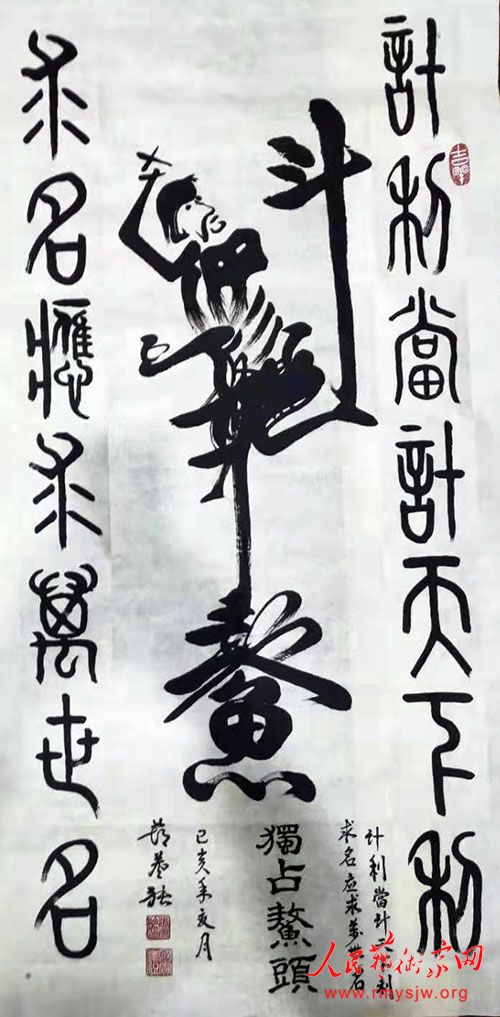 計利當計天下利
求名應求萬世名
斗
鰲
計利當計天下利
求名应求萬世名
獨占鰲頭
己亥年亥月
人民艺術家网
www.rmysjw.org